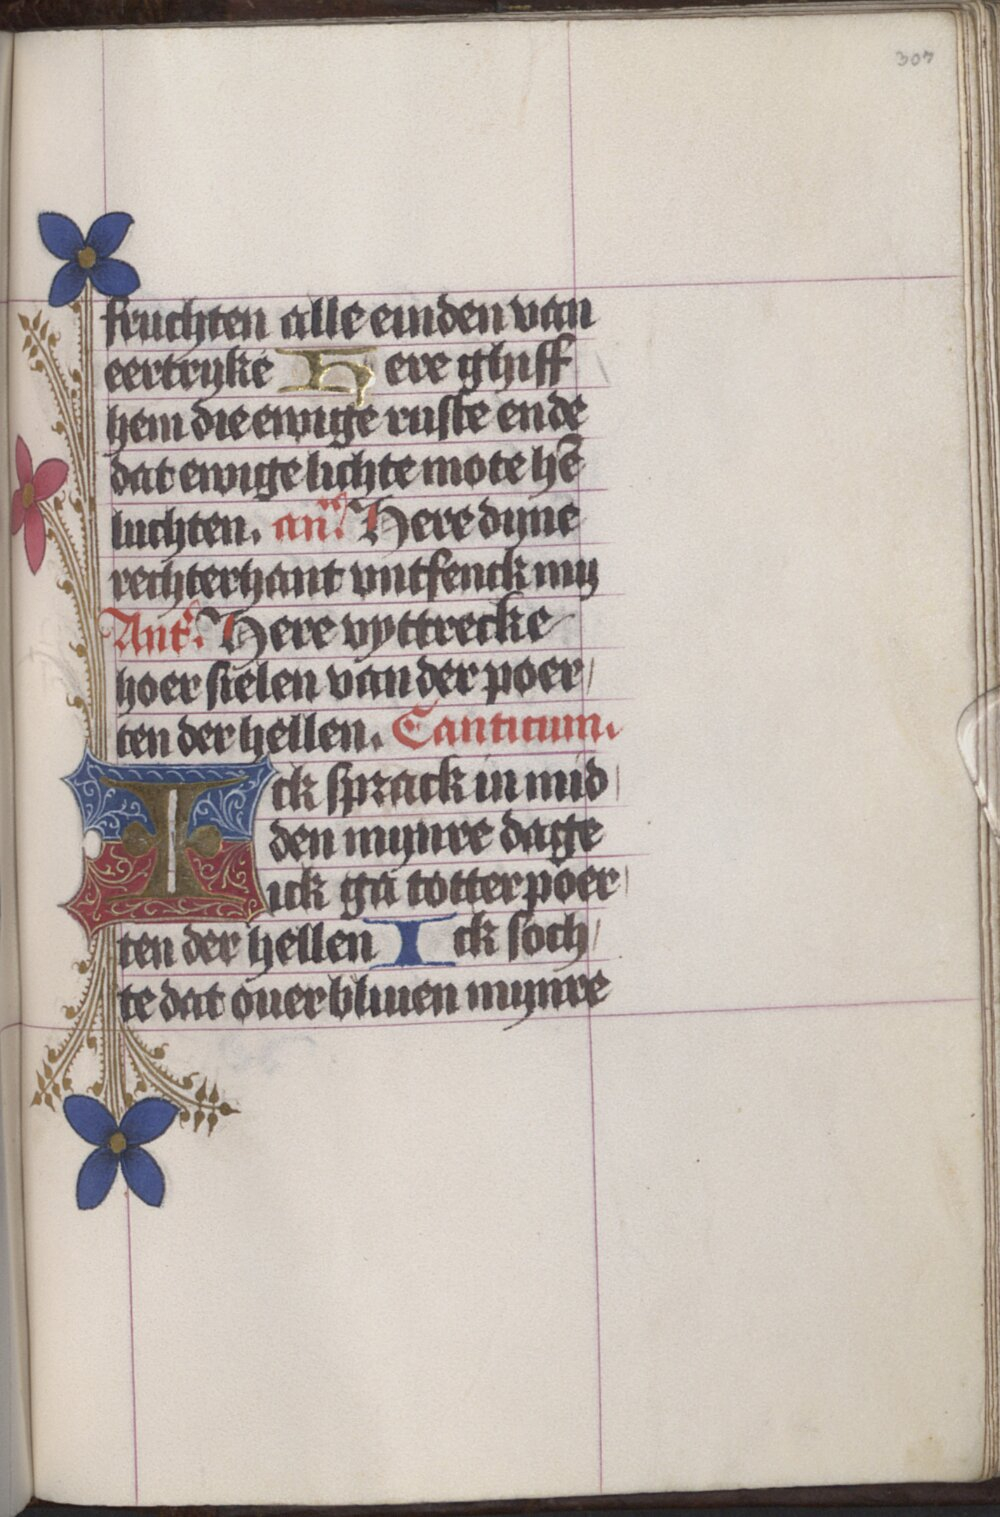 307
fruchten alle einden van
eertryke Here ghiff
hem die ewige ruste ende
dat ewige lichte mote hē
luchten. an̄. Here dyne
rechterhant vntfenck my
Ant. Here vyttrecke
hoer sielen van der poer/
ten der hellen. Canticum.
Ick sprack in mid
den mynre dage
ick ga totter poer
ten der hellen Ick soch/
te dat ouerbliuen mynre